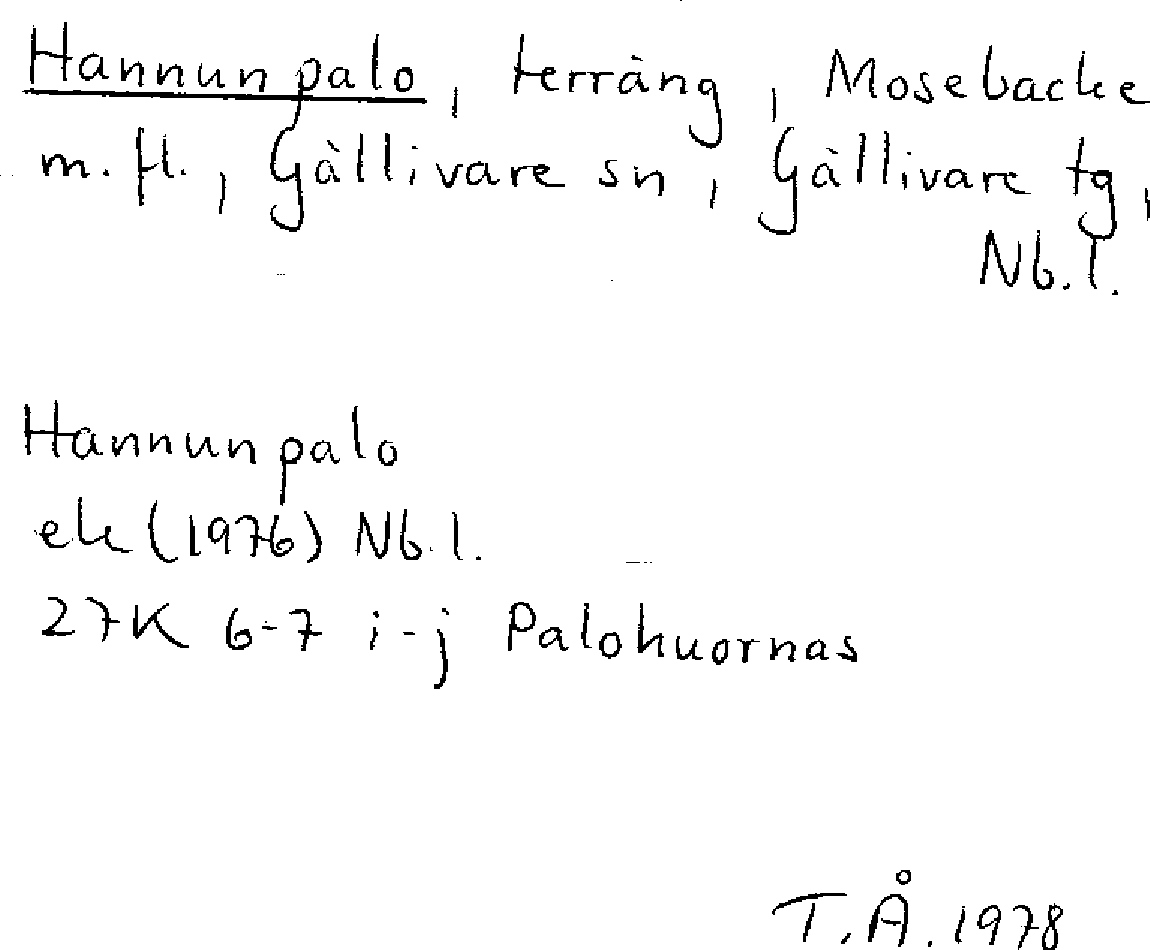 Hannunpalo, terräng, Mosebacke
m.fl., Gällivare sn, Gällivare tg,
Nb.l.
Hannunpalo
ek (1976) Nb.l.
27K 6-7 i-j Palohuornas
T.Å. 1978